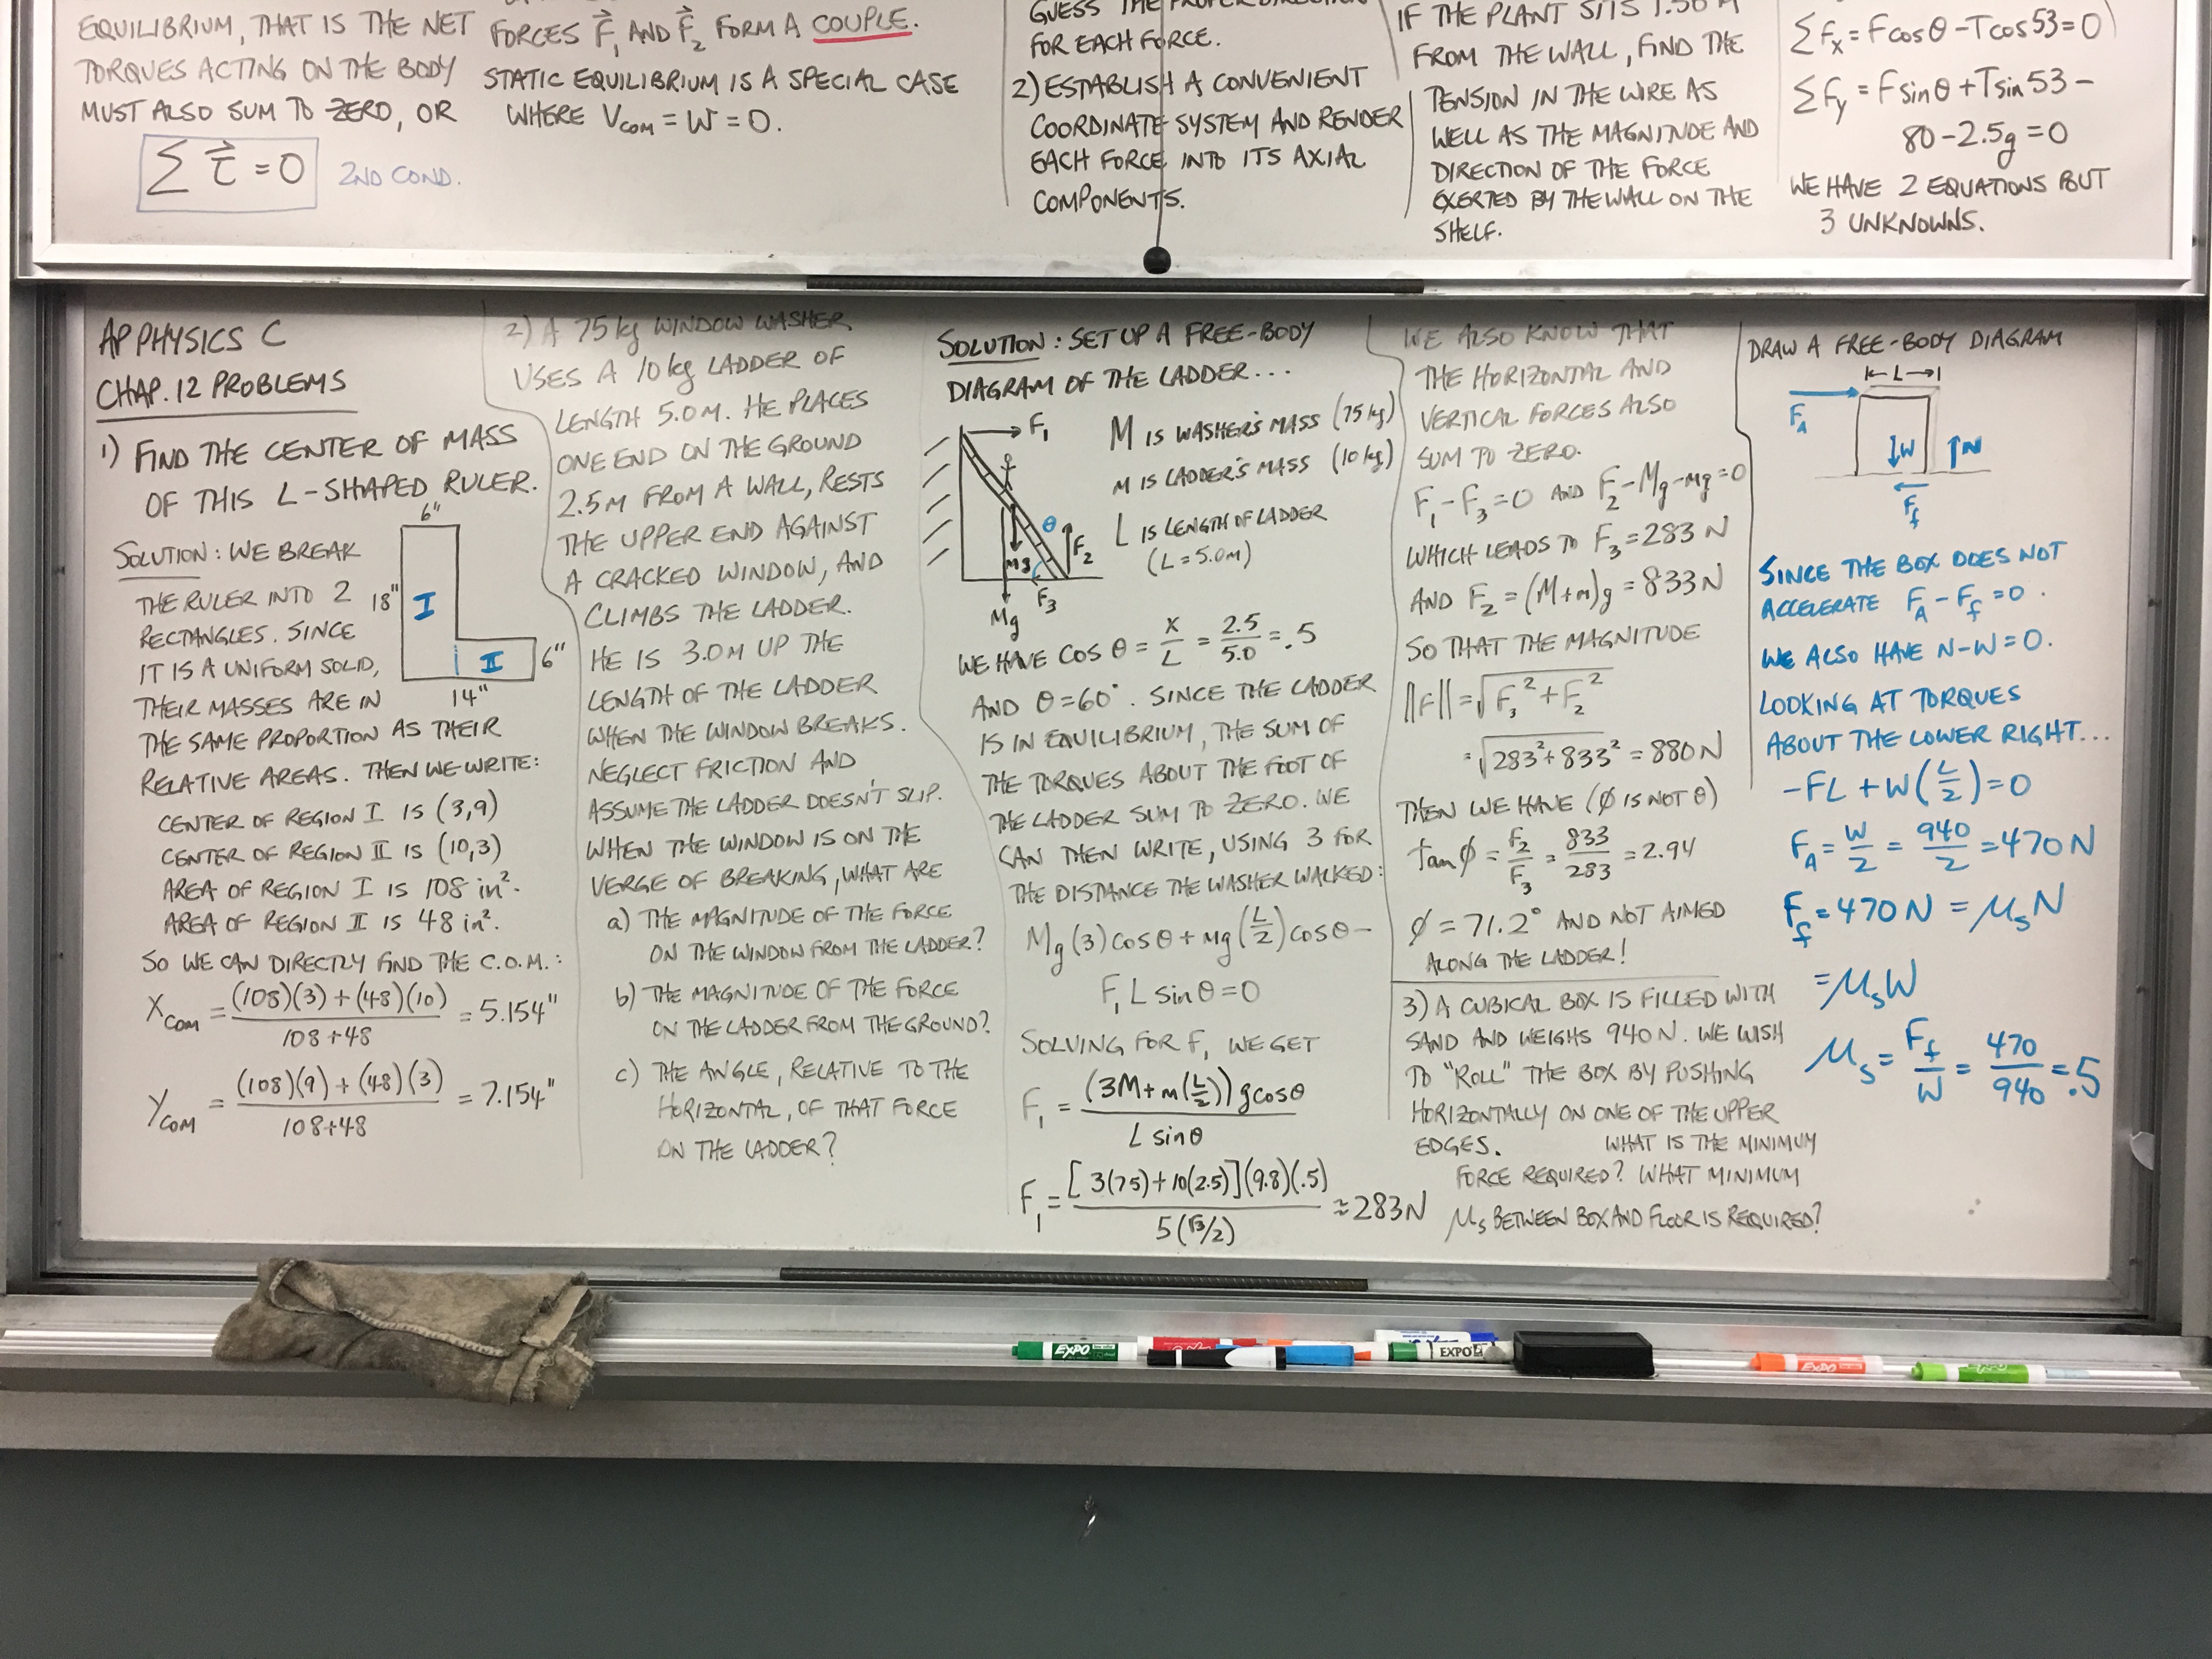 EQUILIBRIUM, THAT IS THE NET
TORQUES ACTING ON THE BODY
MUST ALSO SUM TO ZERO, OR
∑ τ⃗ = 0 2ND COND.
FORCES F⃗₁ AND F⃗₂ FORM A COUPLE.
STATIC EQUILIBRIUM IS A SPECIAL CASE
WHERE V_COM = W = 0.
GUESS THE PROPER DIRECTION
FOR EACH FORCE.
2) ESTABLISH A CONVENIENT
COORDINATE SYSTEM AND RENDER
EACH FORCE INTO ITS AXIAL
COMPONENTS.
IF THE PLANT SITS 1.50 M
FROM THE WALL, FIND THE
TENSION IN THE WIRE AS
WELL AS THE MAGNITUDE AND
DIRECTION OF THE FORCE
EXERTED BY THE WALL ON THE
SHELF.
∑Fx = F cos θ - T cos 53 = 0
∑Fy = F sin θ + T sin 53 -
80 - 2.5g = 0
WE HAVE 2 EQUATIONS BUT
3 UNKNOWNS.
AP PHYSICS C
CHAP. 12 PROBLEMS
1) FIND THE CENTER OF MASS
OF THIS L-SHAPED RULER.
6"
18"
I
II
6"
14"
SOLUTION: WE BREAK
THE RULER INTO 2
RECTANGLES. SINCE
IT IS A UNIFORM SOLID,
THEIR MASSES ARE IN
THE SAME PROPORTION AS THEIR
RELATIVE AREAS. THEN WE WRITE:
CENTER OF REGION I IS (3,9)
CENTER OF REGION II IS (10,3)
AREA OF REGION I IS 108 in².
AREA OF REGION II IS 48 in².
SO WE CAN DIRECTLY FIND THE C.O.M.:
X_COM = (108)(3) + (48)(10) / 108+48 = 5.154"
y_COM = (108)(9) + (48)(3) / 108+48 = 7.154"
2) A 75 kg WINDOW WASHER
USES A 10 kg LADDER OF
LENGTH 5.0 M. HE PLACES
ONE END ON THE GROUND
2.5 M FROM A WALL, RESTS
THE UPPER END AGAINST
A CRACKED WINDOW, AND
CLIMBS THE LADDER.
HE IS 3.0 M UP THE
LENGTH OF THE LADDER
WHEN THE WINDOW BREAKS.
NEGLECT FRICTION AND
ASSUME THE LADDER DOESN'T SLIP.
WHEN THE WINDOW IS ON THE
VERGE OF BREAKING, WHAT ARE
a) THE MAGNITUDE OF THE FORCE
ON THE WINDOW FROM THE LADDER?
b) THE MAGNITUDE OF THE FORCE
ON THE LADDER FROM THE GROUND?
c) THE ANGLE, RELATIVE TO THE
HORIZONTAL, OF THAT FORCE
ON THE LADDER?
SOLUTION: SET UP A FREE-BODY
DIAGRAM OF THE LADDER...
F₁
θ
F₂
mg
F₃
Mg
M IS WASHER'S MASS (75 kg)
M IS LADDER'S MASS (10 kg)
L IS LENGTH OF LADDER
(L = 5.0 M)
WE HAVE COS θ = X/L = 2.5/5.0 = .5
AND θ = 60°. SINCE THE LADDER
IS IN EQUILIBRIUM, THE SUM OF
THE TORQUES ABOUT THE FOOT OF
THE LADDER SUM TO ZERO. WE
CAN THEN WRITE, USING 3 FOR
THE DISTANCE THE WASHER WALKED:
Mg(3) cos θ + mg(L/2) cos θ -
F₁ L sin θ = 0
SOLVING FOR F₁ WE GET
F₁ = (3M + m(L/2)) g cos θ / L sin θ
F₁ = [3(75) + 10(2.5)](9.8)(.5) / 5(√3/2) ≈ 283 N
WE ALSO KNOW THAT
THE HORIZONTAL AND
VERTICAL FORCES ALSO
SUM TO ZERO.
F₁ - F₃ = 0 AND F₂ - Mg - mg = 0
WHICH LEADS TO F₃ = 283 N
AND F₂ = (M+m)g = 833 N
SO THAT THE MAGNITUDE
||F|| = √F₃² + F₂²
= √283² + 833² = 880 N
THEN WE HAVE (ϕ IS NOT θ)
tan ϕ = F₂/F₃ = 833/283 = 2.94
ϕ = 71.2° AND NOT AIMED
ALONG THE LADDER!
3) A CUBICAL BOX IS FILLED WITH
SAND AND WEIGHS 940 N. WE WISH
TO "ROLL" THE BOX BY PUSHING
HORIZONTALLY ON ONE OF THE UPPER
EDGES. WHAT IS THE MINIMUM
FORCE REQUIRED? WHAT MINIMUM
μs BETWEEN BOX AND FLOOR IS REQUIRED?
DRAW A FREE-BODY DIAGRAM
L
F_A
W
N
F_f
SINCE THE BOX DOES NOT
ACCELERATE F_A - F_f = 0.
WE ALSO HAVE N-W=0.
LOOKING AT TORQUES
ABOUT THE LOWER RIGHT...
-FL + W(L/2) = 0
F_A = W/2 = 940/2 = 470 N
F_f = 470 N = μs N
= μs W
μs = F_f/W = 470/940 = .5
EXPO
EXPO
EXPO